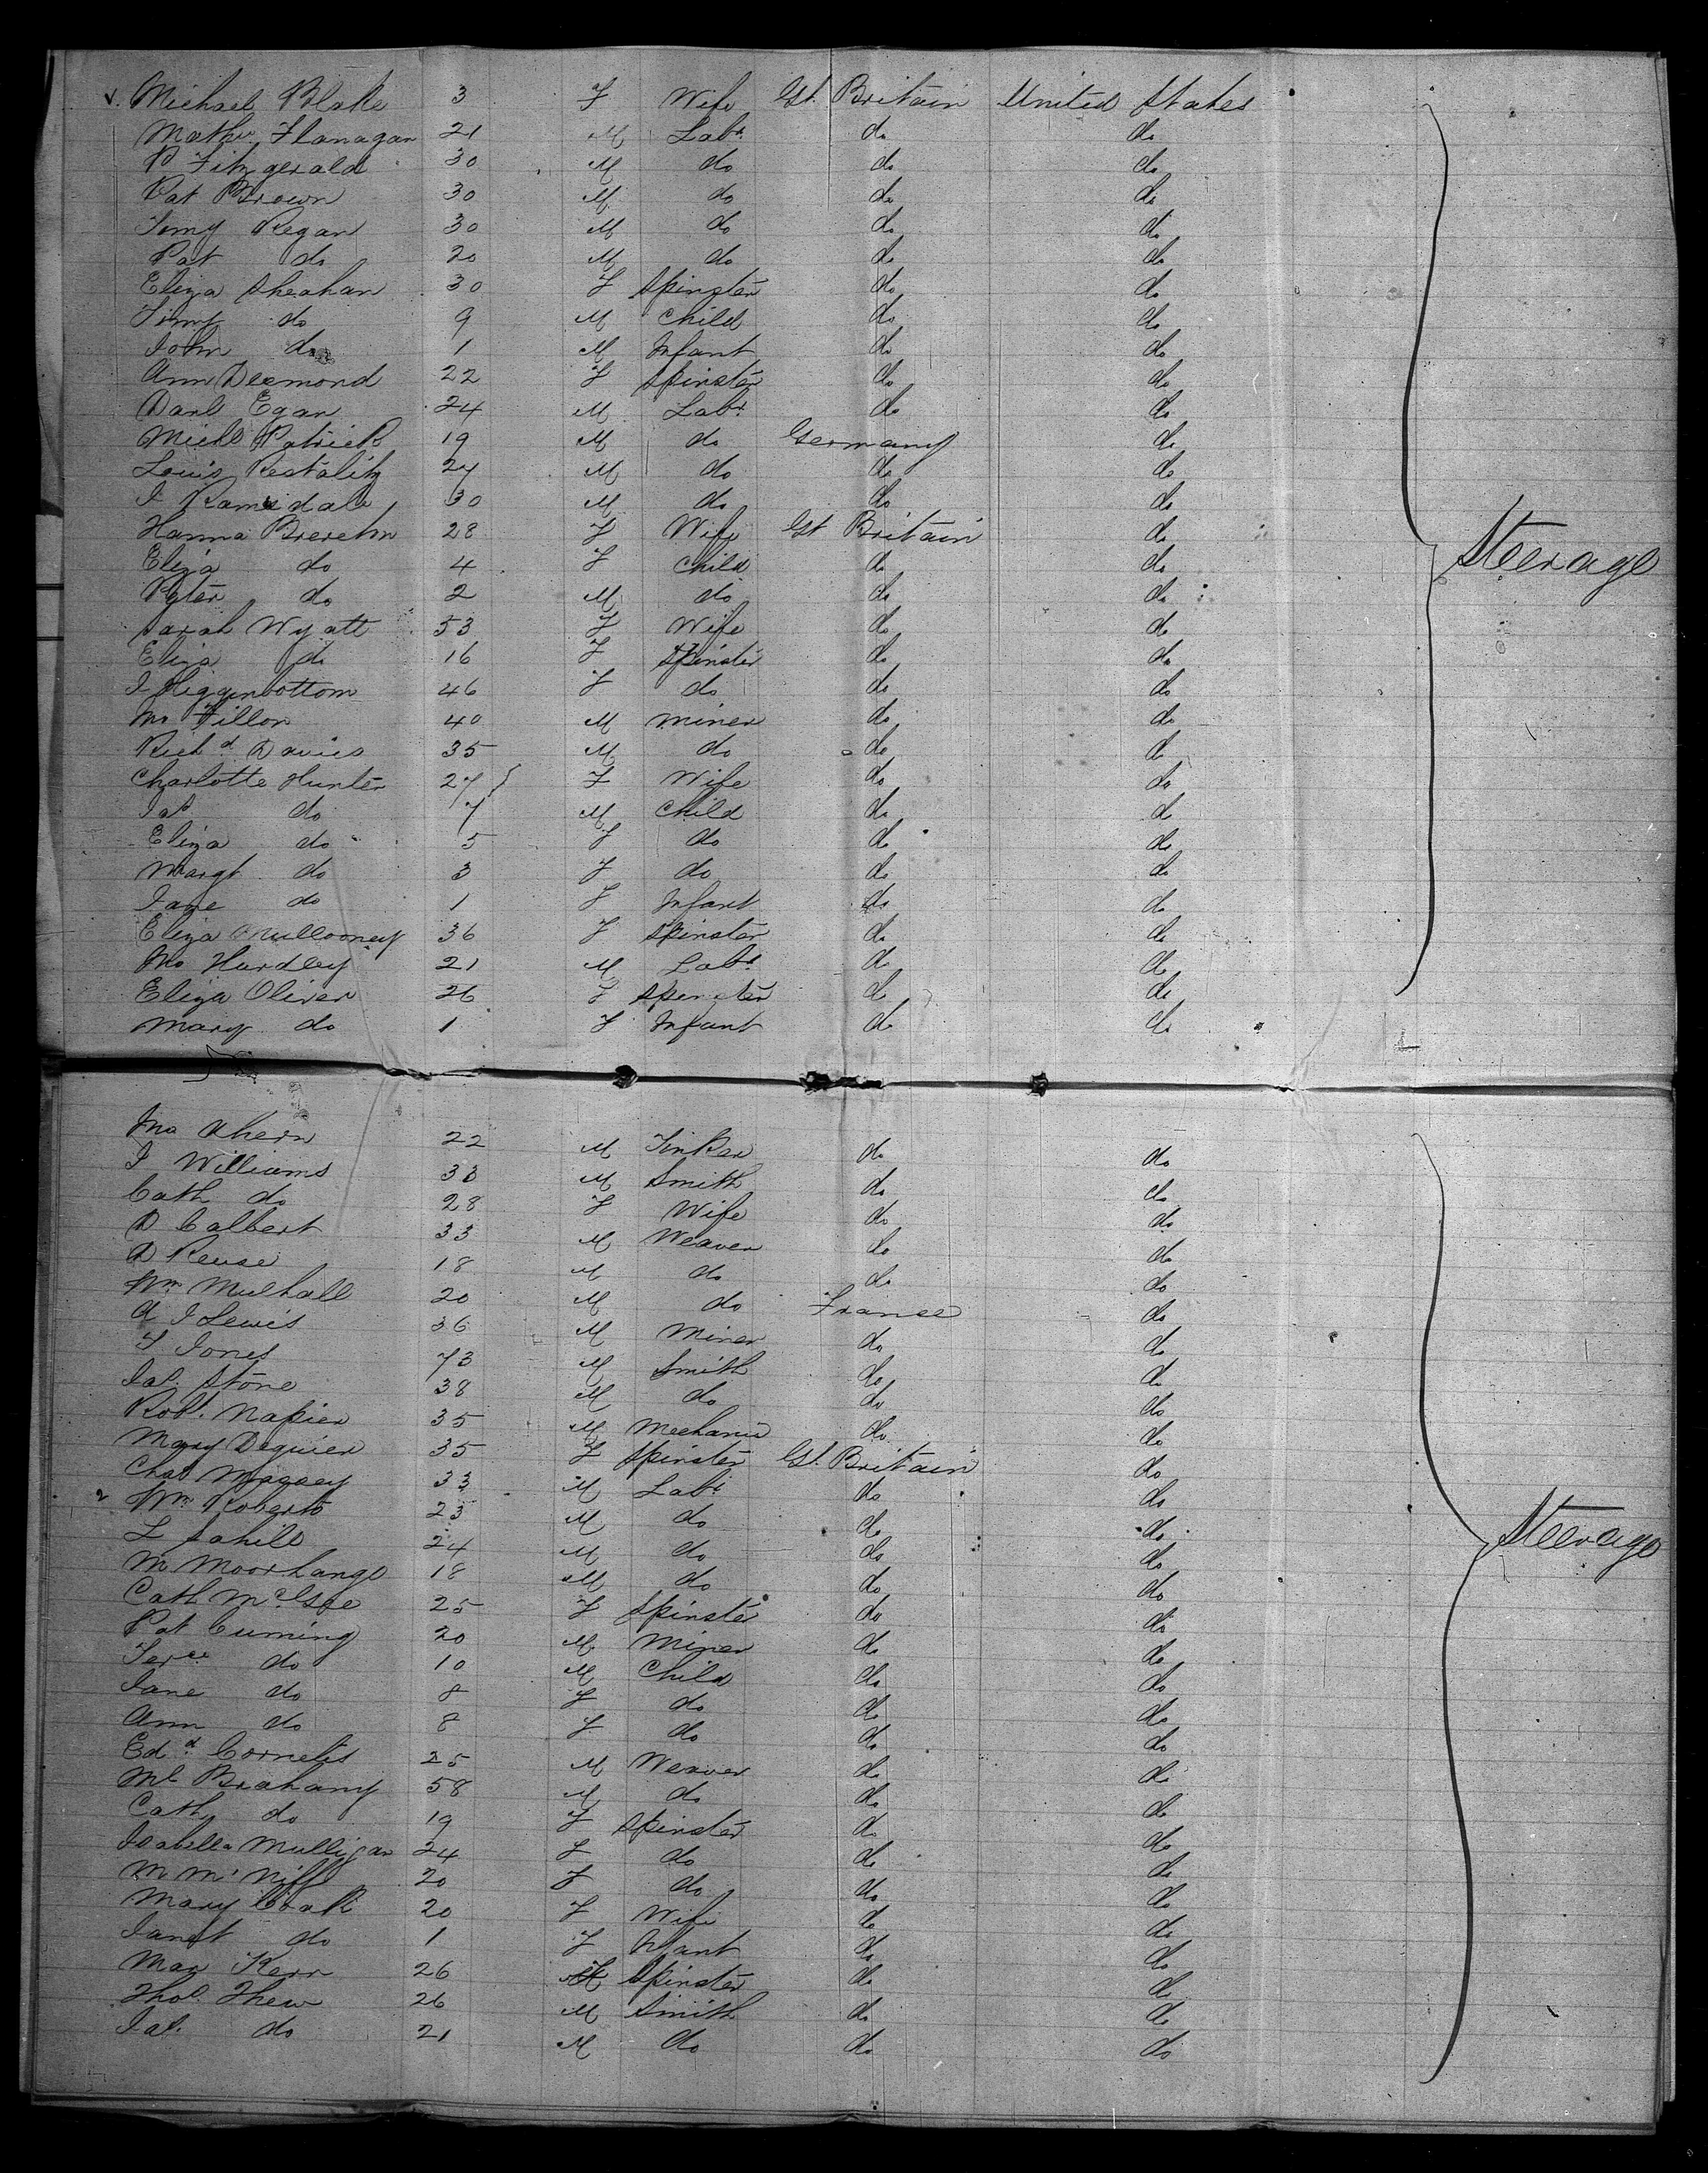 Michael Blake 3 F Wife Gt. Britain United States
Mathw. Flanagan 21 M Labr. do do
P Fitzgerald 30 M do do do
Pat Brown 30 M do do do
Timy Regan 30 M do do do
Pat do 20 M do do do
Eliza Sheahan 30 F Spinster do do
Timy do 9 M Child do do
John do 1 M Infant do do
Ann Desmond 22 F Spinster do do
Danl Egan 24 M Labr. do do
Michl Patrick 19 M do Germany do
Louis 27 M do do do
J Ramsdale 30 M do do do
Hanna Brereton 28 F Wife Gt Britain do
Steerage
Eliza do 4 F Child do do
Peter do 2 M do do do
Sarah Wyatt 53 F Wife do do
Eliza do 16 F Spinster do do
J Higginbottom 46 F do do do
Fillon 40 M Miner do do
Richd Davies 35 M do do do
Charlotte Hunter 27 F Wife do do
Jas do 7 M Child do do
Eliza do 5 F do do do
Margt. do 3 F do do do
Jane do 1 F Infant do do
Eliza Mullooney 36 F Spinster do do
Jno Hurdley 21 M Labr do do
Eliza Oliver 26 F Spinster do do
Mary do 1 F Infant do do
Jno Ahern 22 M Tinker do do
J Williams 33 M Smith do do
Cath do 28 F Wife do do
D Calbert 33 M Weaver do do
D Reuse 18 M do do do
Wm Mulhall 20 M do France do
J Lewis 36 M Miner do do
T Jones 73 M Smith do do
Jas. Stone 38 M do do do
Robt. Napier 35 M Mechanic do do
Mary Deguier 35 F Spinster Gt. Britain do
Chas 33 M Labr do do
Wm Roberts 23 M do do do
Steerage
L Sahill 24 M do do do
M 18 M do do do
Cath McGee 25 F Spinster do do
Pat Cuming 20 M Miner do do
do 10 M Child do do
Jane do 8 F do do do
Ann do 8 F do do do
Edd Cornelis 25 M Weaver do do
Ml 58 M do do do
Cath do 19 F Spinster do do
Isabella Mulligan 24 F do do do
M McNiff 20 F do do do
Mary 20 F Wife do do
Janet do 1 F Infant do do
Mar Kerr 26 Spinster do do
Thos. Thew 26 M Smith do do
Jas. do 21 M do do do